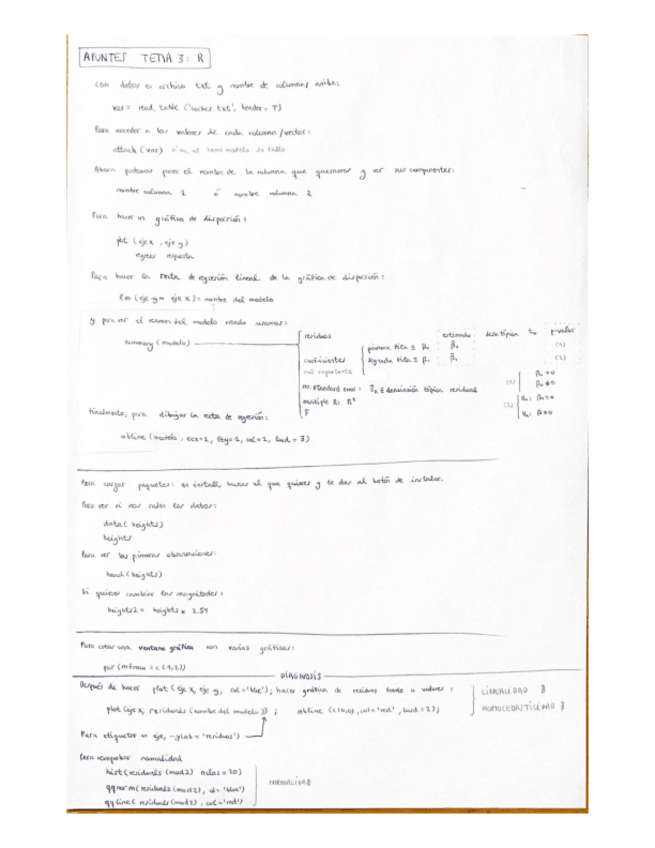 APUNTES TEMA 3: R
con datos en archivo txt y nombre de columnas arriba:
var = read.table ('coches.txt', header = T)
Para acceder a los valores de cada columna/vector:
attach (var) si no, al hacer modelo da fallo
Ahora podemos poner el nombre de la columna que queramos y ver sus componentes:
nombre columna 1 ó nombre columna 2
Para hacer un gráfico de dispersión:
plot (eje x, eje y)
regresor respuesta
Para hacer la recta de regresión lineal de la gráfica de dispersión:
lm (eje y ~ eje x) = nombre del modelo
y para ver el resumen del modelo creado usamos:
summary (modelo)
residuos
estimado desv. típica t p-valor
coeficientes
primera fila ≡ β₀ β̂₀ (1)
segunda fila ≡ β₁ β̂₁ (2)
más importante
res. standard error: ≡ desviación típica residual
multiple R: R²
F
(1) β₀ = 0
β₀ ≠ 0
(2) H₀: β₁ = 0
H₁: β₁ ≠ 0
Finalmente, para dibujar la recta de regresión:
abline (modelo, cex=1, lty=1, col=2, lwd = 3)
Para cargar paquetes: en install, buscas el que quieres y le das al botón de instalar.
Para ver si nos salen los datos:
data (heights)
heights
Para ver las primeras observaciones:
head (heights)
Si quieres cambiar las magnitudes:
heights2 = heights * 2.54
Para crear una ventana gráfica con varias gráficas:
par (mfrow = c(1,2))
DIAGNOSIS
Después de hacer plot (eje x, eje y, col='blue'); hacer gráfica de residuos frente a valores:
LINEALIDAD
plot (eje x, residuals (nombre del modelo)); abline (c(0,0), col='red', lwd=2);
HOMOCEDASTICIDAD
Para etiquetar un eje, -ylab = 'residuos')
Para comprobar normalidad
hist (residuals (mod2) nclass = 20)
qqnorm (residuals (mod2), col='blue')
NORMALIDAD
qqline (residuals (mod2), col='red')